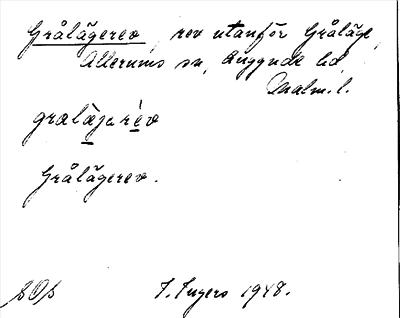 Grålägerev, rev utanför Gråläge,
Allerums sn, Luggude hd
Malm. l.
gralæjarev
Grålägerev.
SOs
I. Ingers 1948.